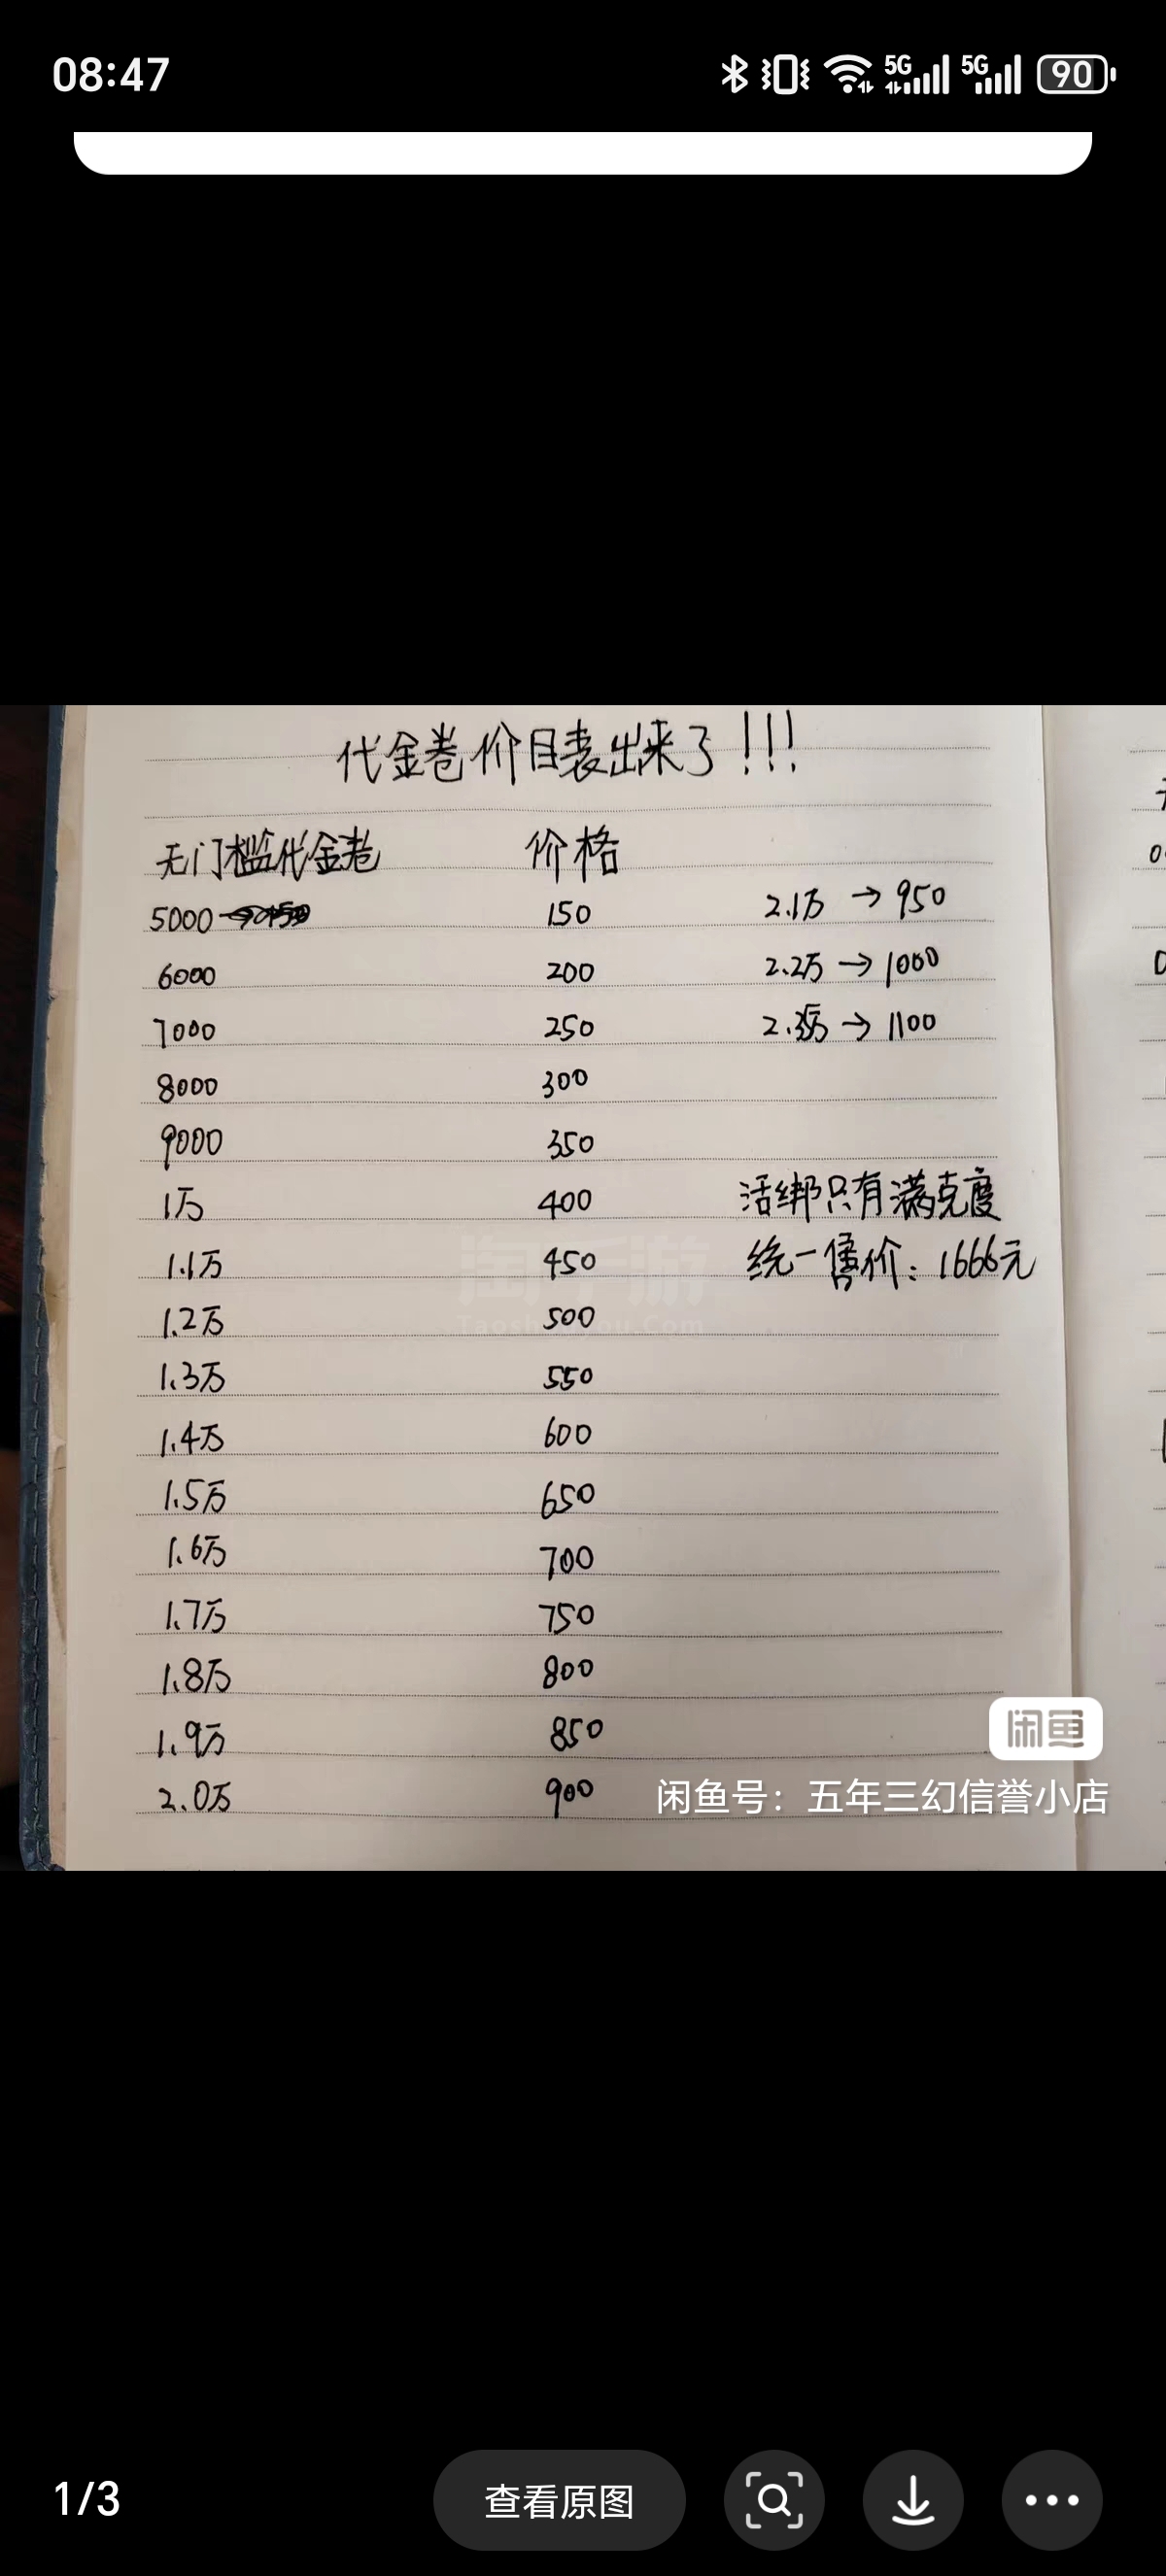 08:47
5G 5G 90
代金卷价目表出来了!!!
无门槛代金卷 价格
5000 150 2.1万→950
6000 200 2.2万→1000
7000 250 2.3万→1100
8000 300
9000 350
1万 400 活绑只有满克度
1.1万 450 统一售价：1666元
淘手游
Taoshouyou.Com
1.2万 500
1.3万 550
1.4万 600
1.5万 650
1.6万 700
1.7万 750
1.8万 800
1.9万 850
2.0万 900
闲鱼
闲鱼号：五年三幻信誉小店
1/3
查看原图